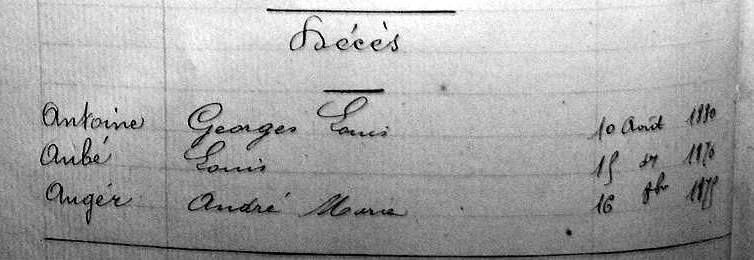 Décès
Antoine Georges Louis 10 Août 1880
Aubé Louis 15 1876
Augér André Marie 16 8bre 1875